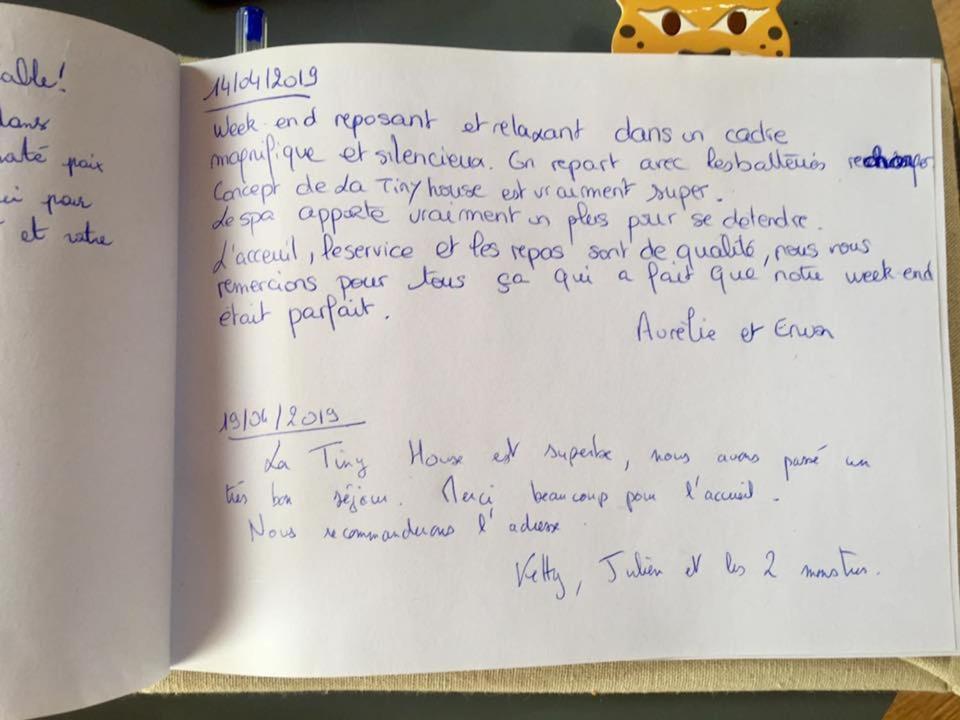 able!
dans
paix
pour
et votre
14/04/2019
Week end reposant et relaxant dans un cadre
magnifique et silencieux. On repart avec les batteries
Concept de la Tiny house est vraiment super.
Le spa apporte vraiment un plus pour se detendre.
L'acceuil, le service et les repas sont de qualité, nous vous
remercions pour tous ça qui a fait que notre week end
était parfait.
Aurélie et Erwan
19/04/2019
La Tiny House est superbe, nous avons passé un
très bon séjour. Merci beaucoup pour l'accueil.
Nous recommanderons l'adresse
Ketty, Julien et les 2 monstres.